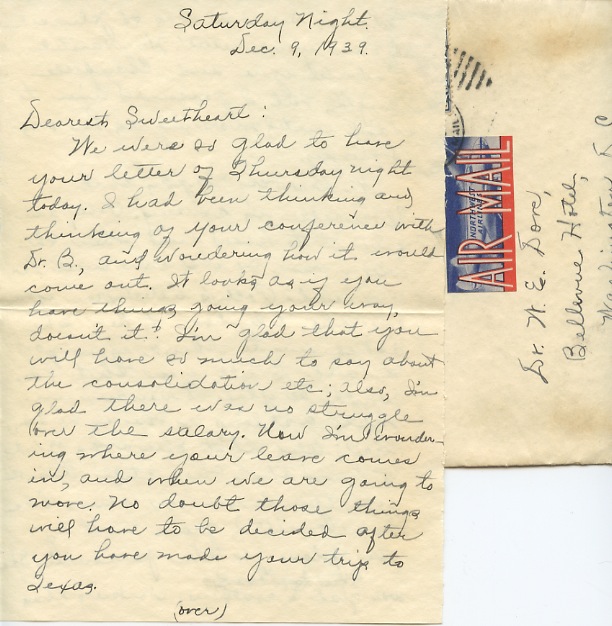 Saturday Night.
Dec. 9, 1939.
Dearest Sweetheart:
We were so glad to have
your letter of Thursday night
today. I had been thinking and
thinking of your conference with
Dr. B., and wondering how it would
come out. It looks as if you
have things going your way,
doesn't it! I'm glad that you
will have so much to say about
the consolidation etc; also, I'm
glad there was no struggle
over the salary. Now I'm wonder-
ing where your leave comes
in, and when we are going to
move. No doubt those things
will have to be decided after
you have made your trip to
Texas.
(over)
AIR MAIL
NORTHWEST
AIRLINES
Dr. W. E. Dove,
Bellevue Hotel,
Washington D C